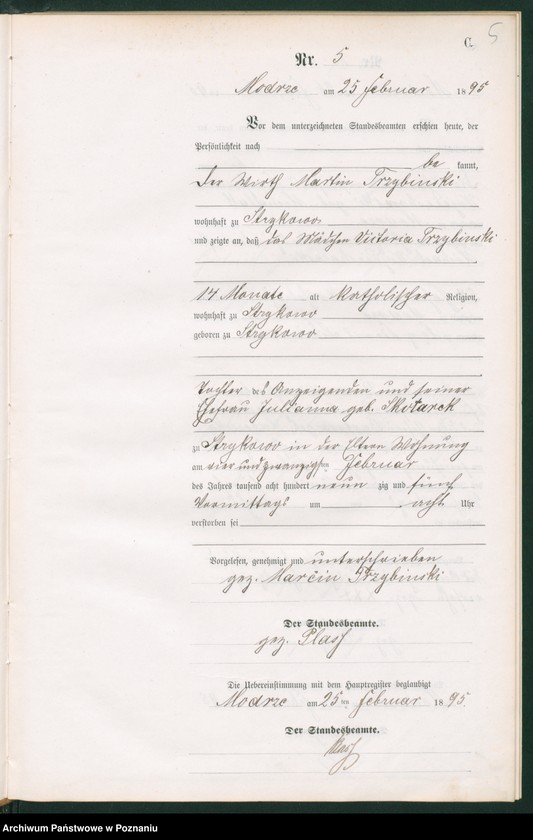 C. 5
Nr. 5
Modrze am 25 Februar 1895
Vor dem unterzeichneten Standesbeamten erschien heute, der
Persönlichkeit nach
be kannt,
der Wirth Martin Trzybinski
wohnhaft zu Strykowo
und zeigte an, daß das Mädchen Victoria Trzybinski
14 Monate alt katholischer Religion,
wohnhaft zu Strykowo
geboren zu Strykowo
Tochter des Anzeigenden und seiner
Ehefrau Julianna geb. Skotarek
zu Strykowo in der Eltern Wohnung
am vier und zwanzigsten Februar
des Jahres tausend acht hundert neun zig und fünf
Vormittags um acht Uhr
verstorben sei
Vorgelesen, genehmigt und unterschrieben
gez. Marcin Trzybinski
Der Standesbeamte.
gez. Plass
Die Uebereinstimmung mit dem Hauptregister beglaubigt
Modrze am 25ten Februar 1895.
Der Standesbeamte.
Plass
Archiwum Państwowe w Poznaniu